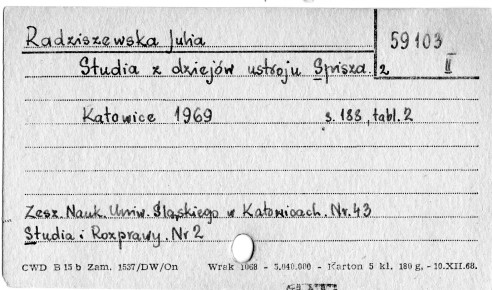 Radziszewska Julia
59103
II
Studia z dziejów ustroju Spisza.
2
Katowice 1969 s. 188, tabl. 2
Zesz. Nauk. Uniw. Śląskiego w Katowicach. Nr. 43
Studia i Rozprawy. Nr 2
CWD B 15 b Zam. 1537/DW/On Wrak 1068 - 5.040.000 - Karton 5 kl. 180 g. -10.XII.68.